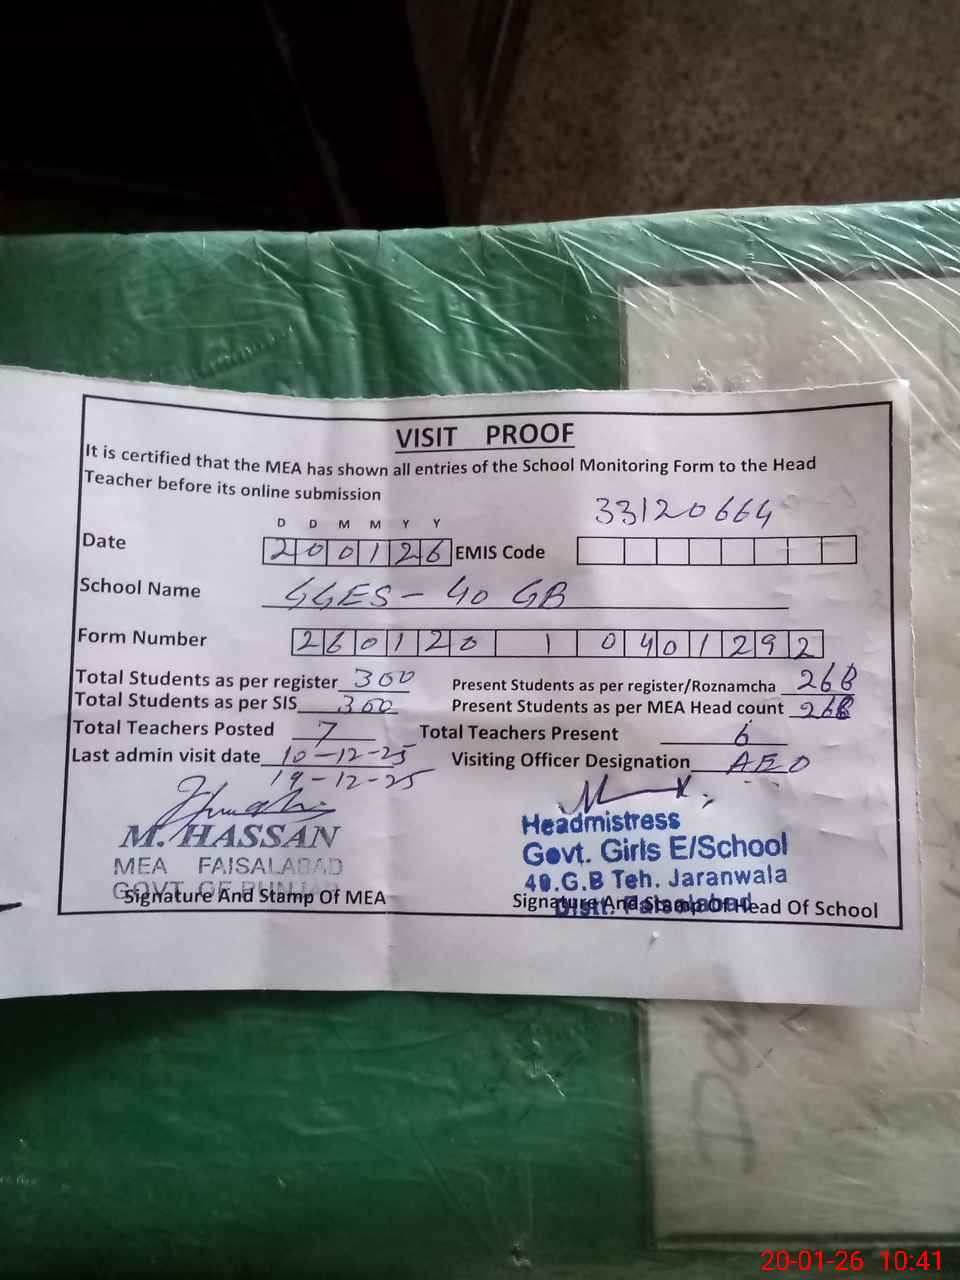 VISIT PROOF
It is certified that the MEA has shown all entries of the School Monitoring Form to the Head
Teacher before its online submission
33120664
D D M M Y Y
Date 200126 EMIS Code
School Name GGES - 40 GB
Form Number 260120 1 0401292
Total Students as per register 300 Present Students as per register/Roznamcha 268
Total Students as per SIS 300 Present Students as per MEA Head count 268
Total Teachers Posted 7 Total Teachers Present 6
Last admin visit date 10-12-25 Visiting Officer Designation AEO
19-12-25
M. HASSAN
MEA FAISALABAD
GOVT OF PUNJAB
Signature And Stamp Of MEA
Headmistress
Govt. Girls E/School
40.G.B Teh. Jaranwala
Distt. Faisalabad
Signature And Stamp Of Head Of School
20-01-26 10:41